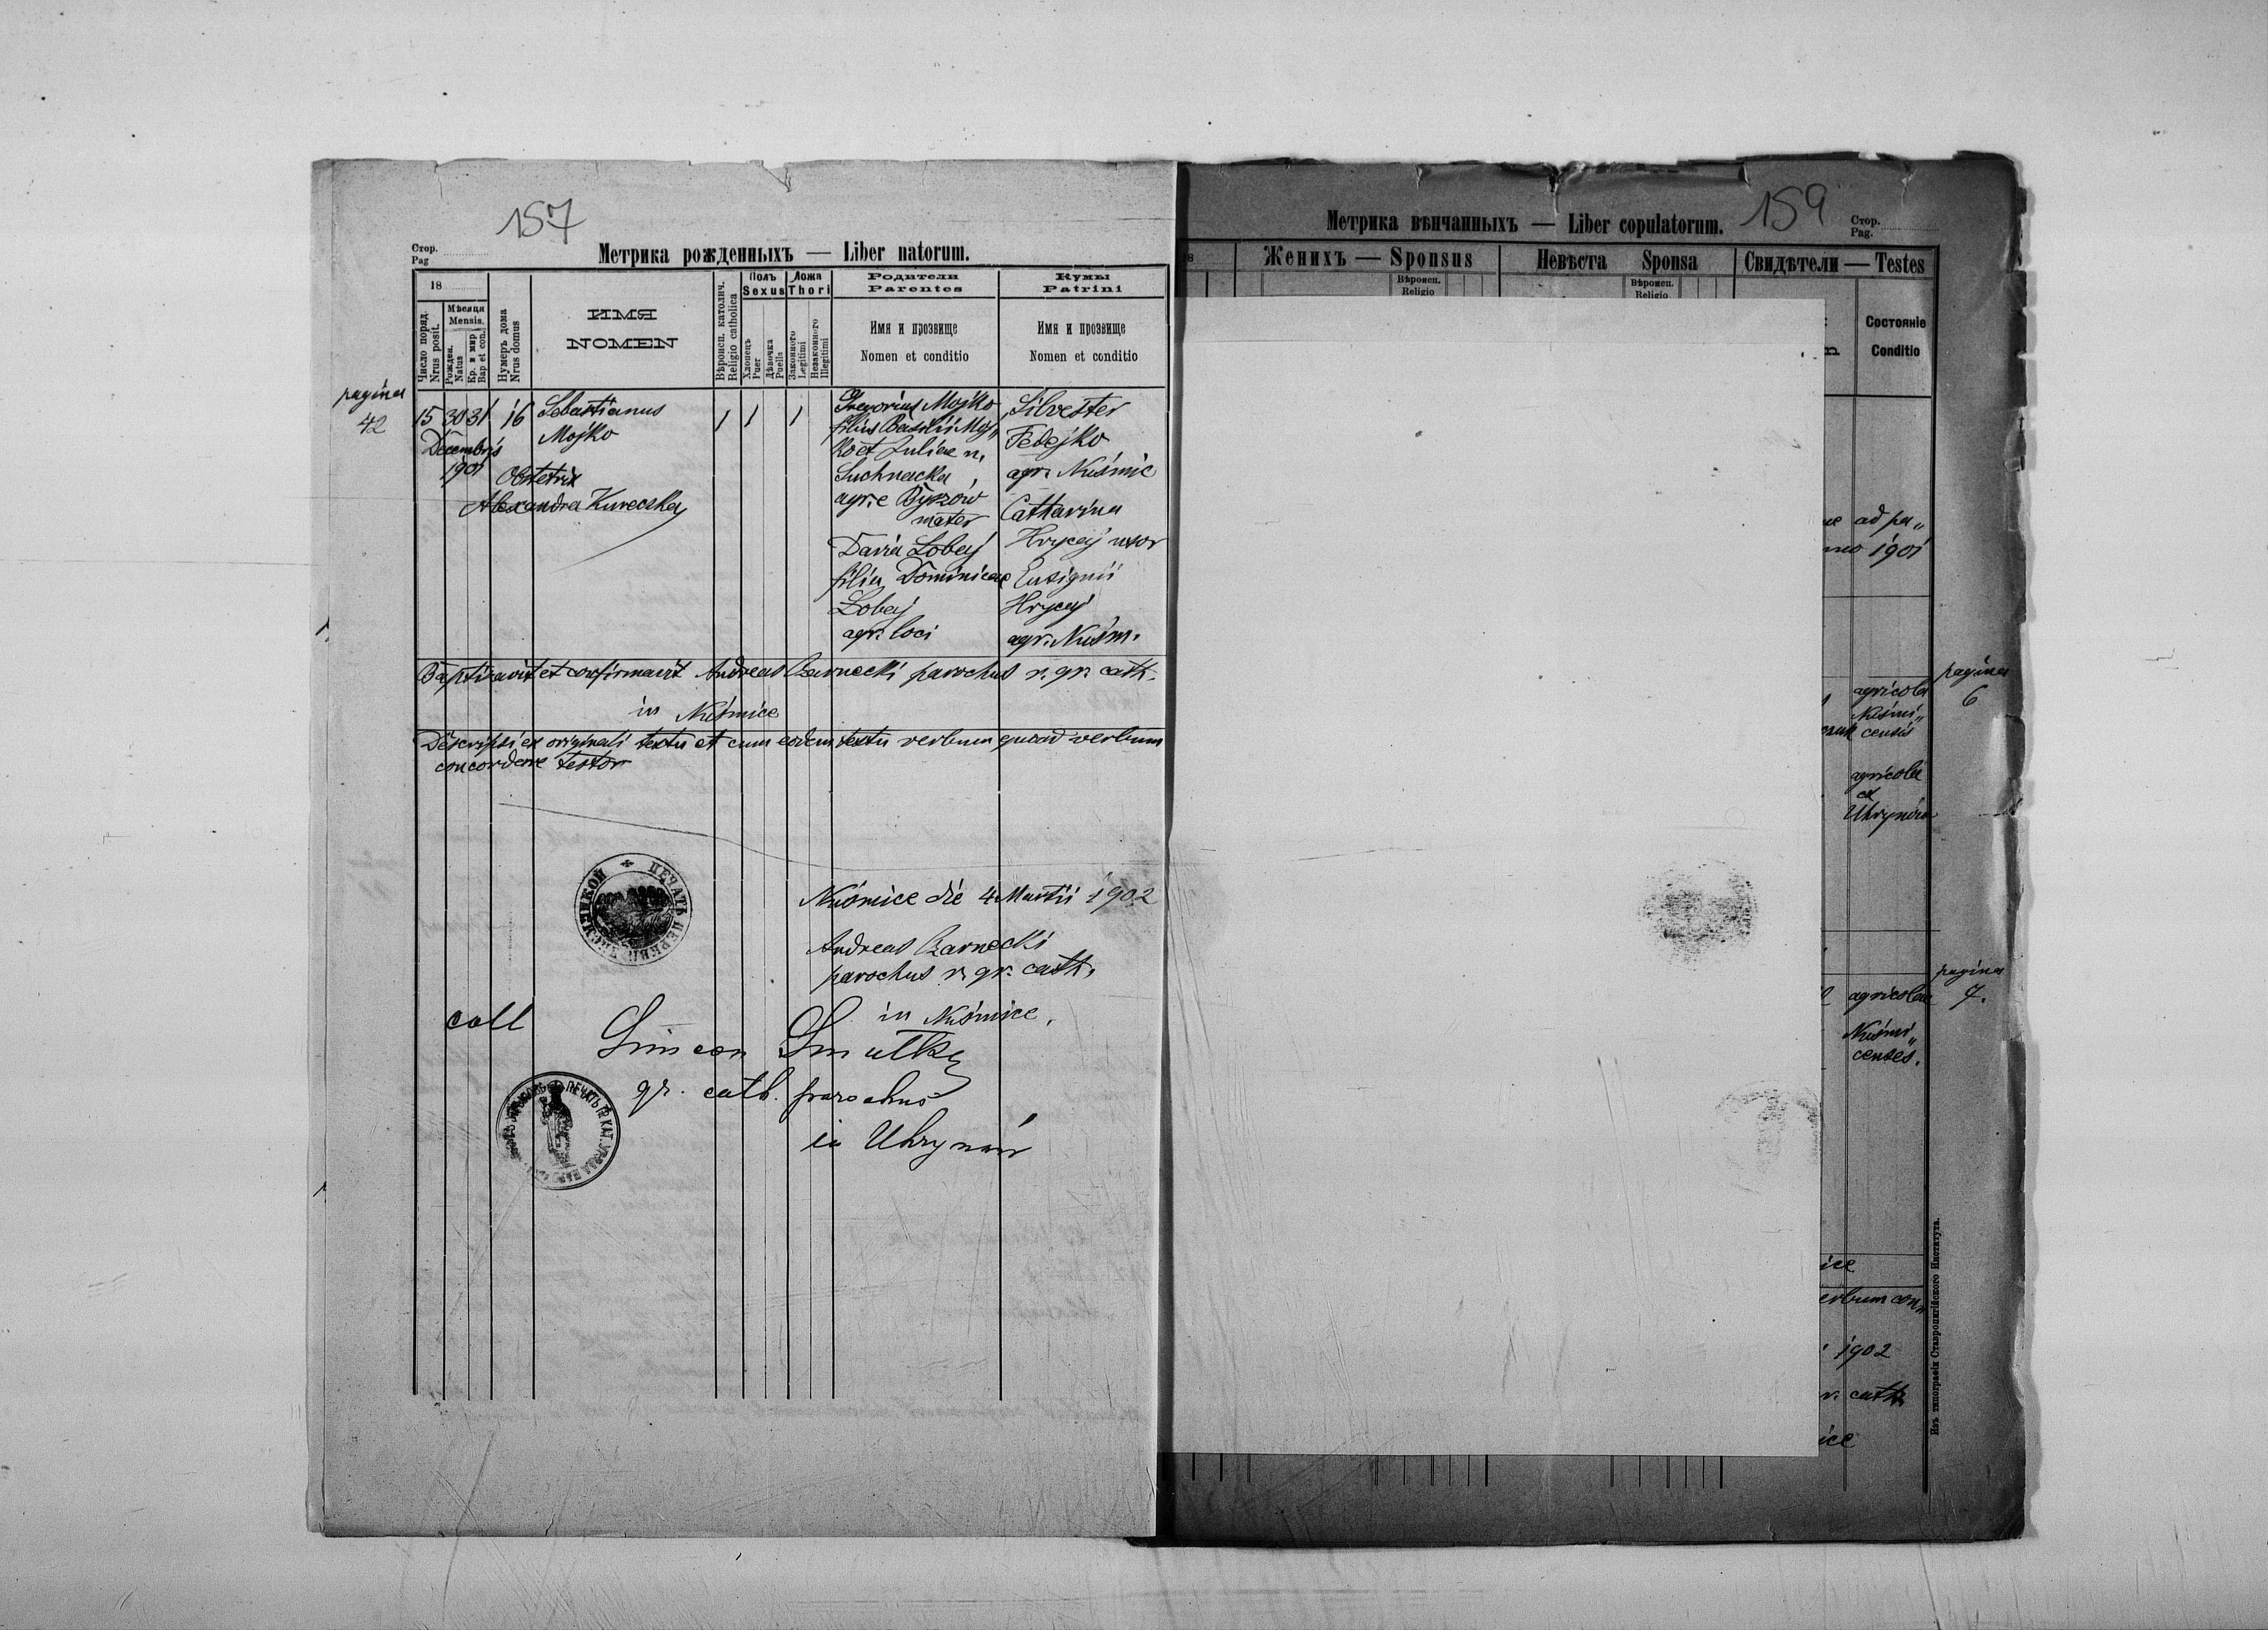 157
Стор.
Pag
Метрика рожденныхъ — Liber natorum.
18
Число поряд.
Nrus posit.
Мѣсяця
Mensis.
Рожден.
Natus
Кр. и мир
Bap et con.
Нумеръ дома
Nrus domus
ИМЯ
NOMEN
Вѣроисп. католич.
Religio catholica
Полъ
Sexus
Хлопецъ
Puer
Дѣвочка
Puella
Ложа
Thori
Законного
Legitimi
Незаконного
Illegitimi
Родители
Parentes
Имя и прозвище
Nomen et conditio
Кумы
Patrini
Имя и прозвище
Nomen et conditio
pagina
42
15 30 31 16
Decembris
1901
Sebastianus
Mojko
Obstetrix
Alexandra Kurecska
1 1 1
Gregorius Mojko
filius Basilii Moj„
ko et Juliae n.
Suchnacka
agr. e Byszów
mater
Daria Lobaj
filia Dominicae
Lobaj
agr. loci
Silvester
Fedejko
agr. Nuśmic
Catharina
Hrycaj uxor
Eusignii
Hrycaj
agr. Nuśm.
Baptizavit et confirmavit Andreas Czarnecki parochus r. gr. cath.
in Nuśmice
Descripsi ex originali textu et cum eodem textu verbum quoad verbum
concordare testor
Nuśmice die 4 Martii 1902
Andreas Czarnecki
parochus r. gr. cath.
in Nuśmice.
coll
Simeon Smulka
gr. cath. parochus
in Uhrynów
159
Метрика вѣнчанныхъ — Liber copulatorum.
Стор.
Pag.
8
Женихъ — Sponsus
Вѣроисп.
Religio
Невѣста Sponsa
Вѣроисп.
Religio
Свидѣтели — Testes
Состояніе
Conditio
ad pa„
1901
pagina
6
agricola
Nuśmi„
censis
agricola
ex
Uhrynów
pagina
7.
agricolae
Nuśmi„
censes.
ice
erbum con„
1902
r. cath
ice
Изъ типографіи Ставропигійского Института.